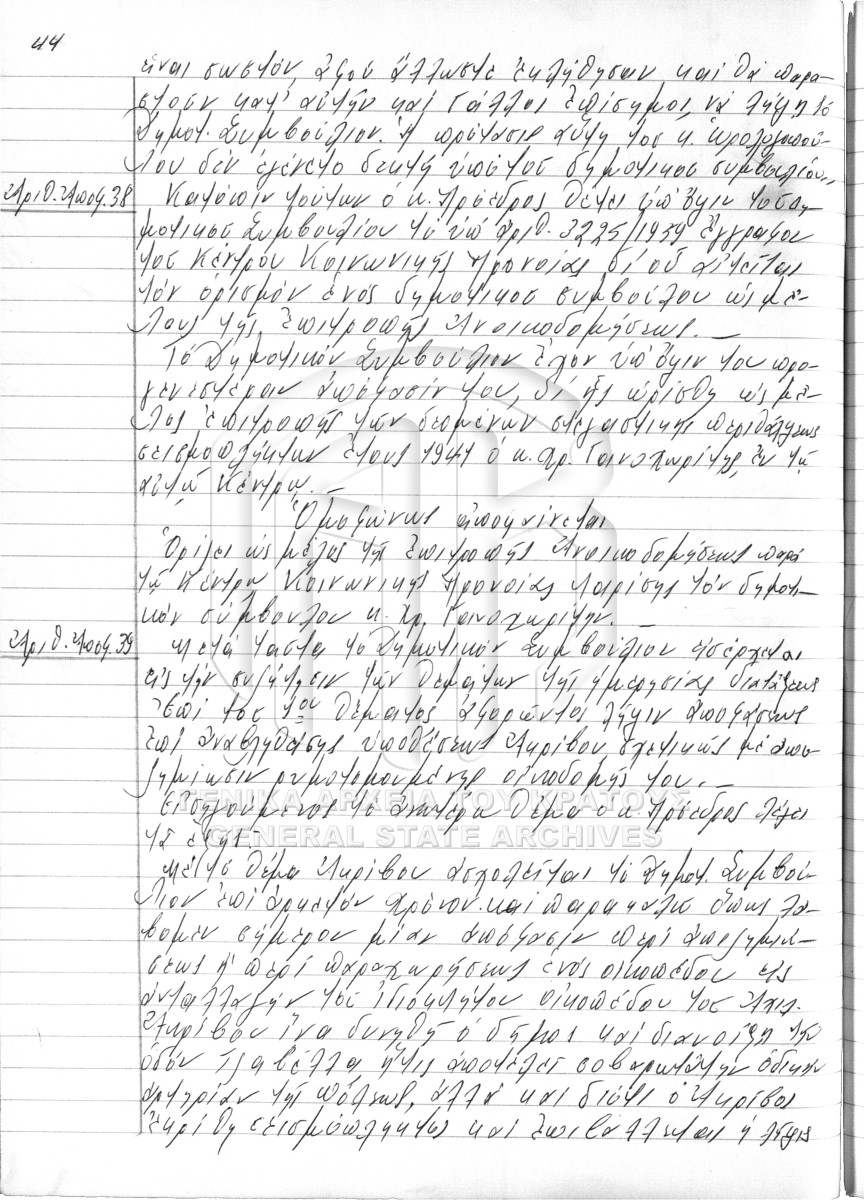 44
εἶναι σωστόν, ἀφοῦ ἄλλωστε ἐκλήθησαν καί θά παρα-
στοῦν κατ' αὐτήν καί Γάλλοι ἐπίσημοι, νά λήξῃ τό
Δημοτ. Συμβούλιον. Ἡ πρότασις αὕτη τοῦ κ.
δέν ἐγένετο δεκτή ὑπό τοῦ δημοτικοῦ συμβουλίου.
Ἀριθ. Ἀποφ. 38
Κατόπιν τούτων ὁ κ. Πρόεδρος θέτει ὑπ' ὄψιν τοῦ Δη-
μοτικοῦ Συμβουλίου τό ὑπ' ἀριθ. 3225/1959 ἔγγραφον
τοῦ Κέντρου Κοινωνικῆς Προνοίας δι' οὗ αἰτεῖται
τόν ὁρισμόν ἑνός δημοτικοῦ συμβούλου ὡς μέ-
λους τῆς Ἐπιτροπῆς Ἀνοικοδομήσεως. —
Τό Δημοτικόν Συμβούλιον ἔχον ὑπ' ὄψιν του προ-
γενεστέραν ἀπόφασίν του, δι' ἧς ὡρίσθη ὡς μέ-
λος ἐπιτροπῆς τῶν δεομένων στεγαστικῆς περιθάλψεως
σεισμοπλήκτων ἔτους 1941 ὁ κ. Χρ. Γαινοχωρίτης ἐν τῷ
αὐτῷ Κέντρῳ. —
Ὁμοφώνως ἀποφαίνεται
Ὁρίζει ὡς μέλος τῆς Ἐπιτροπῆς Ἀνοικοδομήσεως παρά
τῷ Κέντρῳ Κοινωνικῆς Προνοίας Λαρίσης τόν δημοτι-
κόν σύμβουλον κ. Χρ. Γαινοχωρίτην. —
Ἀριθ. Ἀποφ. 39
Μετά ταῦτα τό Δημοτικόν Συμβούλιον εἰσέρχεται
εἰς τήν συζήτησιν τῶν θεμάτων τῆς ἡμερησίας διατάξεως
Ἐπί τοῦ 1ου θέματος ἀφορῶντος λῆψιν ἀποφάσεως
ἐπί ἀναβληθείσης ὑποθέσεως Ἀκρίβου σχετικῶς μέ ἀπο-
ζημίωσιν ρυμοτομουμένης οἰκοδομῆς του. —
Εἰσηγούμενος τό ἀνωτέρω θέμα ὁ κ. Πρόεδρος λέγει
τά ἑξῆς:
Μέ τό θέμα Ἀκρίβου ἀσχολεῖται τό Δημοτ. Συμβού-
λιον ἐπί ἀρκετόν χρόνον καί παρακαλῶ ὅπως λά-
βομεν σήμερον μίαν ἀπόφασιν περί ἀποζημιώ-
σεως ἤ περί παραχωρήσεως ἑνός οἰκοπέδου εἰς
ἀνταλλαγήν τοῦ ἰδιοκτήτου οἰκοπέδου τοῦ Ἀχιλ.
Ἀκρίβου ἵνα δυνηθῇ ὁ δῆμος καί διανοίξῃ τήν
ὁδόν Τζαβέλλα ἥτις ἀποτελεῖ σοβαρωτάτην ὁδικήν
ἀρτηρίαν τῆς πόλεως, ἀλλά καί διότι ὁ Ἀκρίβος
ἐκρίθη σεισμόπληκτος καί ἐπιβάλλεται ἡ λῆψις
ΓΕΝΙΚΑ ΑΡΧΕΙΑ ΤΟΥ ΚΡΑΤΟΥΣ
GENERAL STATE ARCHIVES